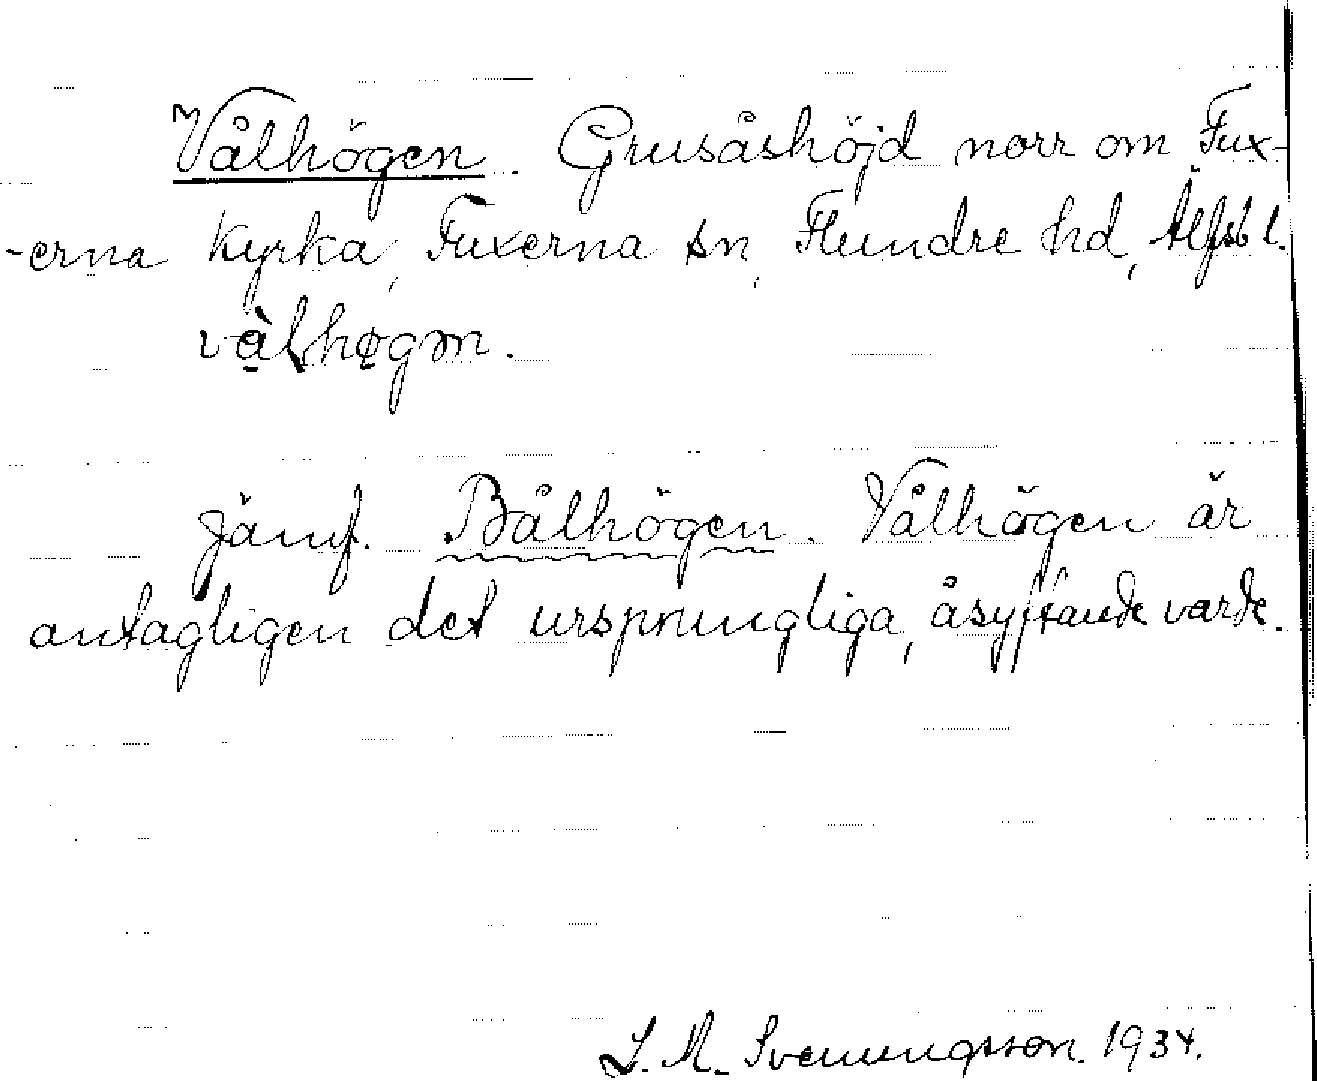 Vålhögen. Grusåshöjd norr om Fux-
-erna Kyrka, Fuxerna sn, Flundre hd, Älfsb l.
vålhøgən.
Jämf. Bålhögen. Vålhögen är
antagligen det ursprungliga, åsyftande varde.
L. M. Svenungsson. 1934.